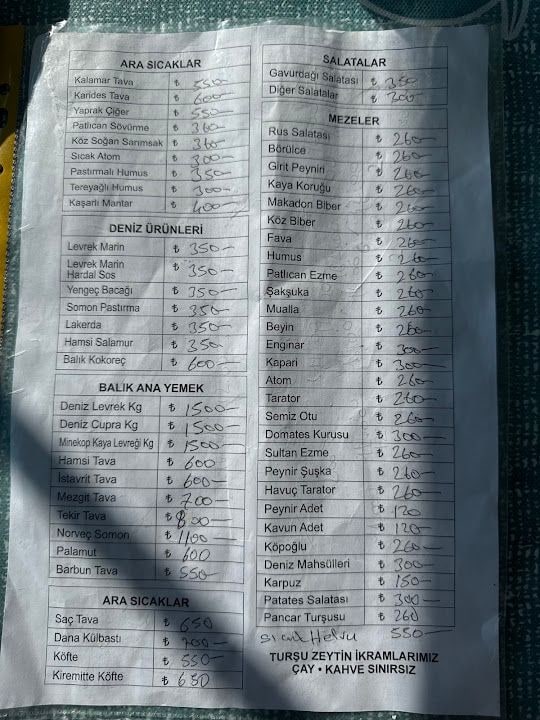 ARA SICAKLAR
Kalamar Tava ₺ 550-
Karides Tava ₺ 600-
Yaprak Ciğer ₺ 550-
Patlıcan Sövürme ₺ 360-
Köz Soğan Sarımsak ₺ 360-
Sıcak Atom ₺ 300-
Pastırmalı Humus ₺ 350-
Tereyağlı Humus ₺ 300-
Kaşarlı Mantar ₺ 400-
DENİZ ÜRÜNLERİ
Levrek Marin ₺ 350-
Levrek Marin
Hardal Sos ₺ 350-
Yengeç Bacağı ₺ 350-
Somon Pastırma ₺ 350-
Lakerda ₺ 350-
Hamsi Salamur ₺ 350-
Balık Kokoreç ₺ 600-
BALIK ANA YEMEK
Deniz Levrek Kg ₺ 1500-
Deniz Cupra Kg ₺ 1500-
Minekop Kaya Levreği Kg ₺ 1500-
Hamsi Tava ₺ 600
İstavrit Tava ₺ 600-
Mezgit Tava ₺ 700-
Tekir Tava ₺ 800-
Norveç Somon ₺ 1100-
Palamut ₺ 600
Barbun Tava ₺ 550-
ARA SICAKLAR
Saç Tava ₺ 650
Dana Külbastı ₺ 700-
Köfte ₺ 550-
Kiremitte Köfte ₺ 650
SALATALAR
Gavurdağı Salatası ₺ 350
Diğer Salatalar ₺ 300-
MEZELER
Rus Salatası ₺ 260-
Börülce ₺ 260-
Girit Peyniri ₺ 260-
Kaya Koruğu ₺ 260-
Makadon Biber ₺ 260-
Köz Biber ₺ 260-
Fava ₺ 260-
Humus ₺ 260-
Patlıcan Ezme ₺ 260-
Şakşuka ₺ 260-
Mualla ₺ 260-
Beyin ₺ 260-
Enginar ₺ 300-
Kapari ₺ 300-
Atom ₺ 260-
Tarator ₺ 260-
Semiz Otu ₺ 260-
Domates Kurusu ₺ 300-
Sultan Ezme ₺ 260-
Peynir Şuşka ₺ 260-
Havuç Tarator ₺ 260-
Peynir Adet ₺ 120
Kavun Adet ₺ 120-
Köpoğlu ₺ 260-
Deniz Mahsülleri ₺ 300-
Karpuz ₺ 150-
Patates Salatası ₺ 300-
Pancar Turşusu ₺ 260
Sıcak Helva 550-
TURŞU ZEYTİN İKRAMLARIMIZ
ÇAY • KAHVE SINIRSIZ